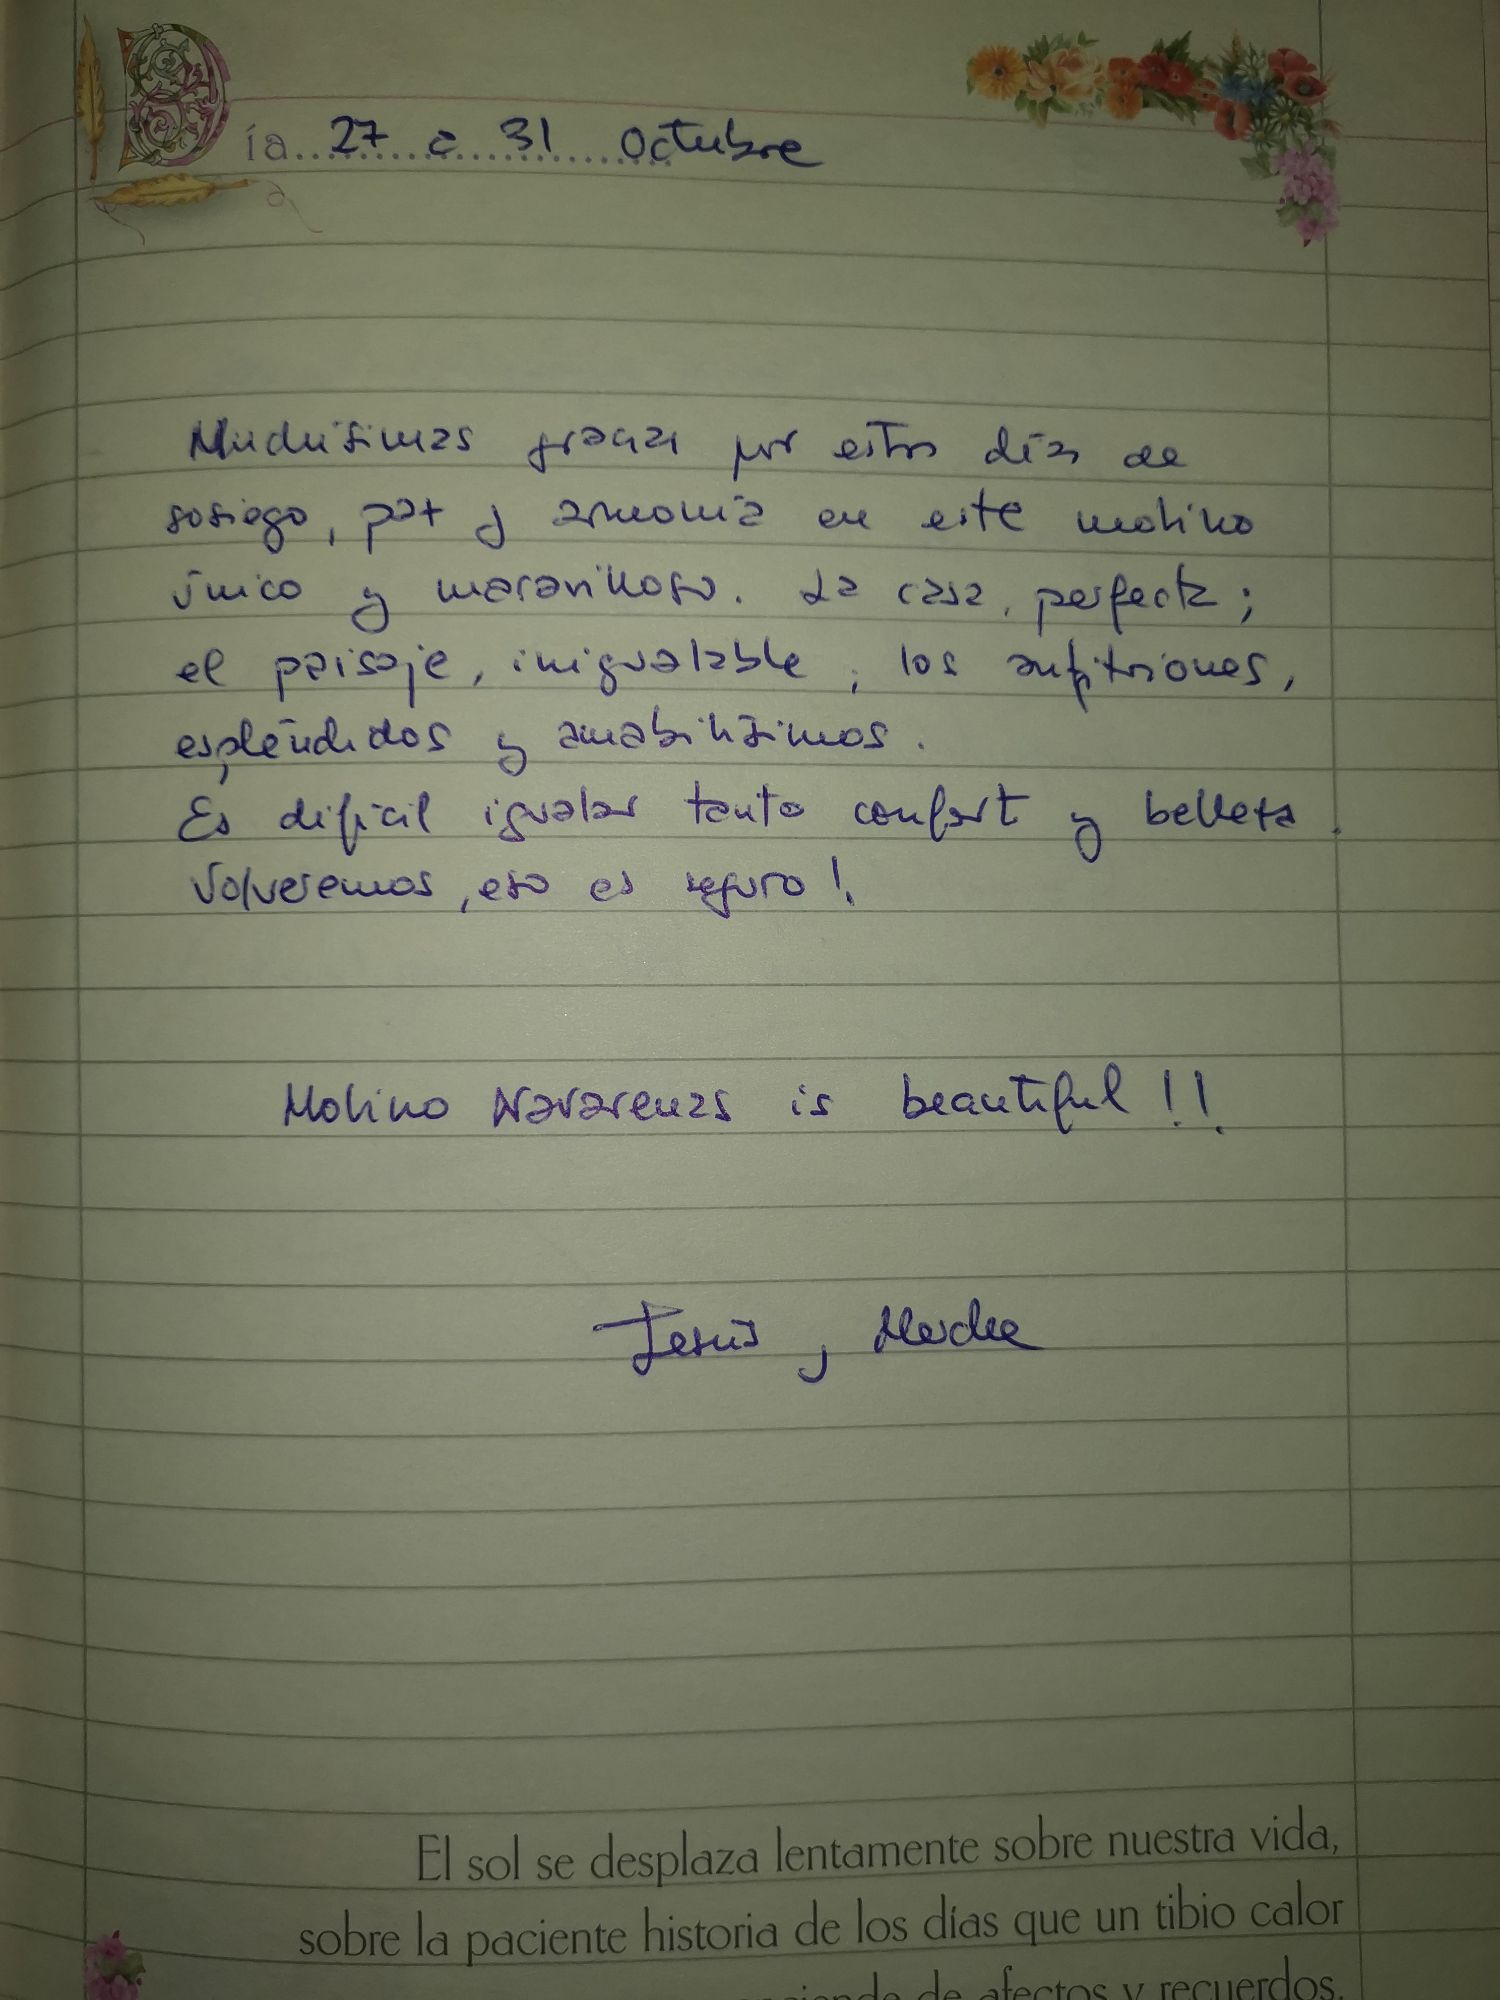 Día 27 a 31 Octubre
Muchísimas gracias por estos días de
sosiego, paz y armonía en este molino
único y maravilloso. La casa, perfecta;
el paisaje, inigualable; los anfitriones,
espléndidos y amabilísimos.
Es difícil igualar tanto confort y belleza.
Volveremos, eso es seguro!.
Molino Navarenas is beautiful!!
Jesús y Merche
El sol se desplaza lentamente sobre nuestra vida,
sobre la paciente historia de los días que un tibio calor
de afectos y recuerdos.